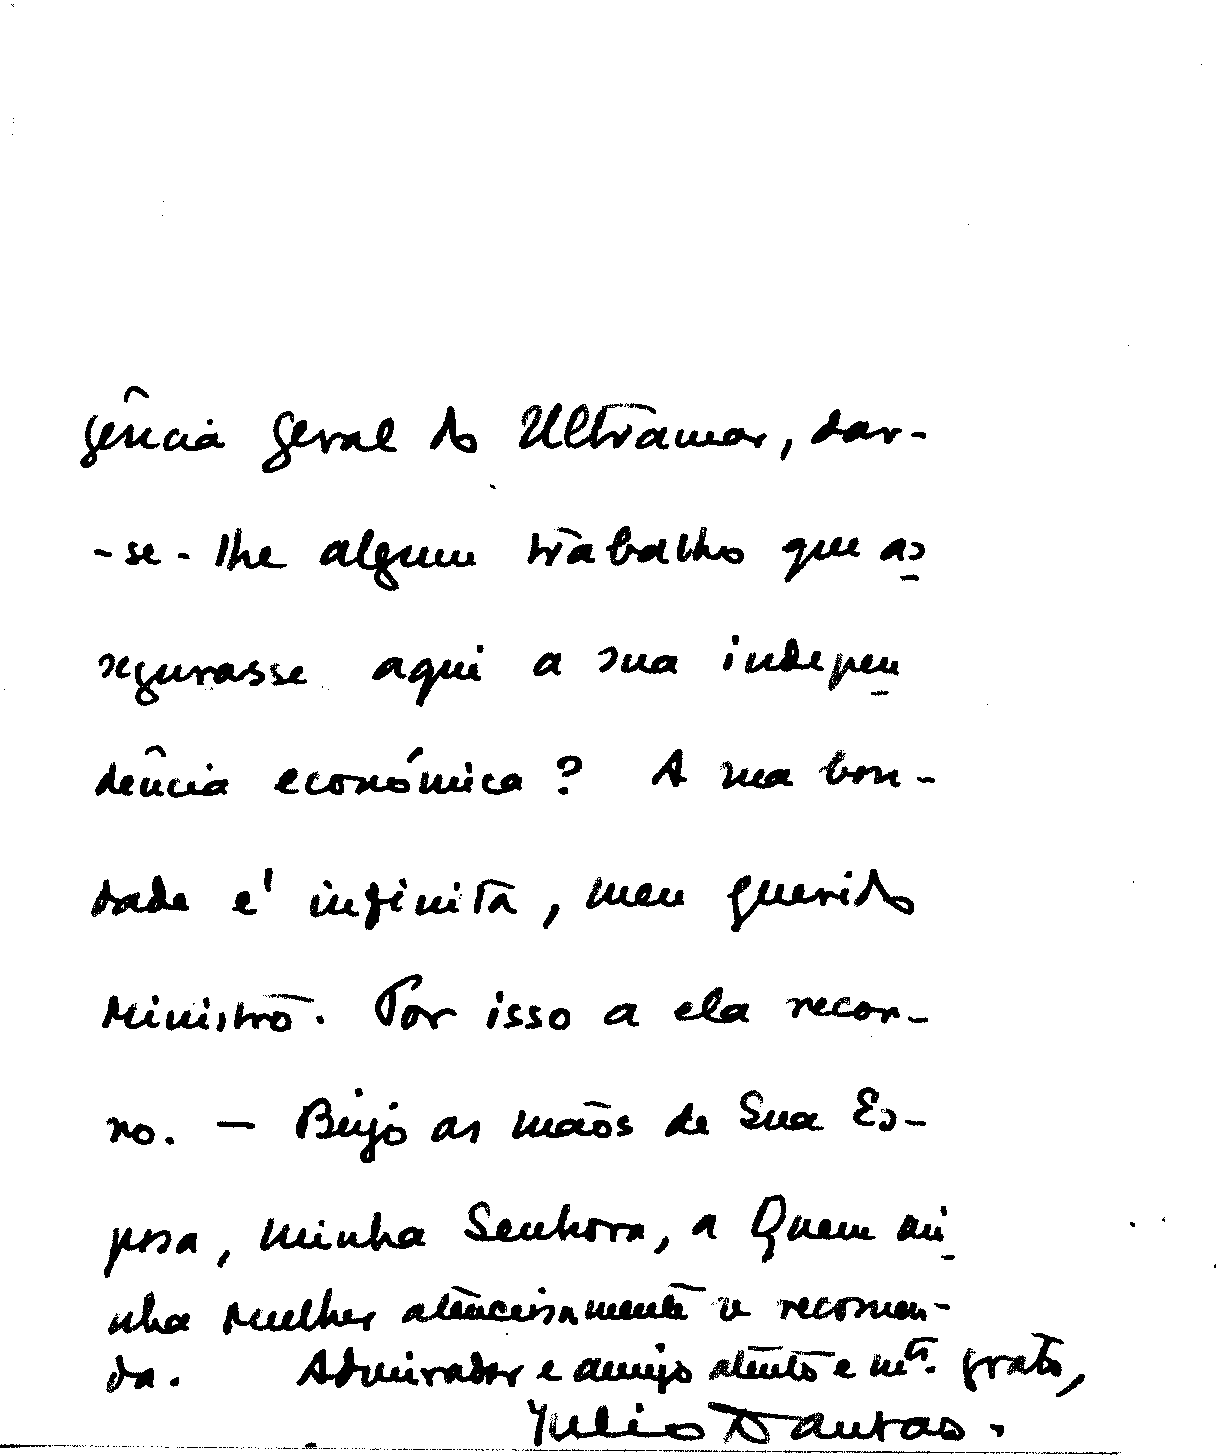 gência Geral do Ultramar, dar-
-se-lhe algum trabalho que as
segurasse aqui a sua indepen
dência económica? A sua bon-
dade é infinita, meu querido
Ministro. Por isso a ela recor-
ro. — Beijo as mãos de Sua Es-
posa, minha Senhora, a Quem mi
nha mulher atenciosamente se recomen-
da. Admirador e amigo atento e mto. grato,
Julio Dantas.